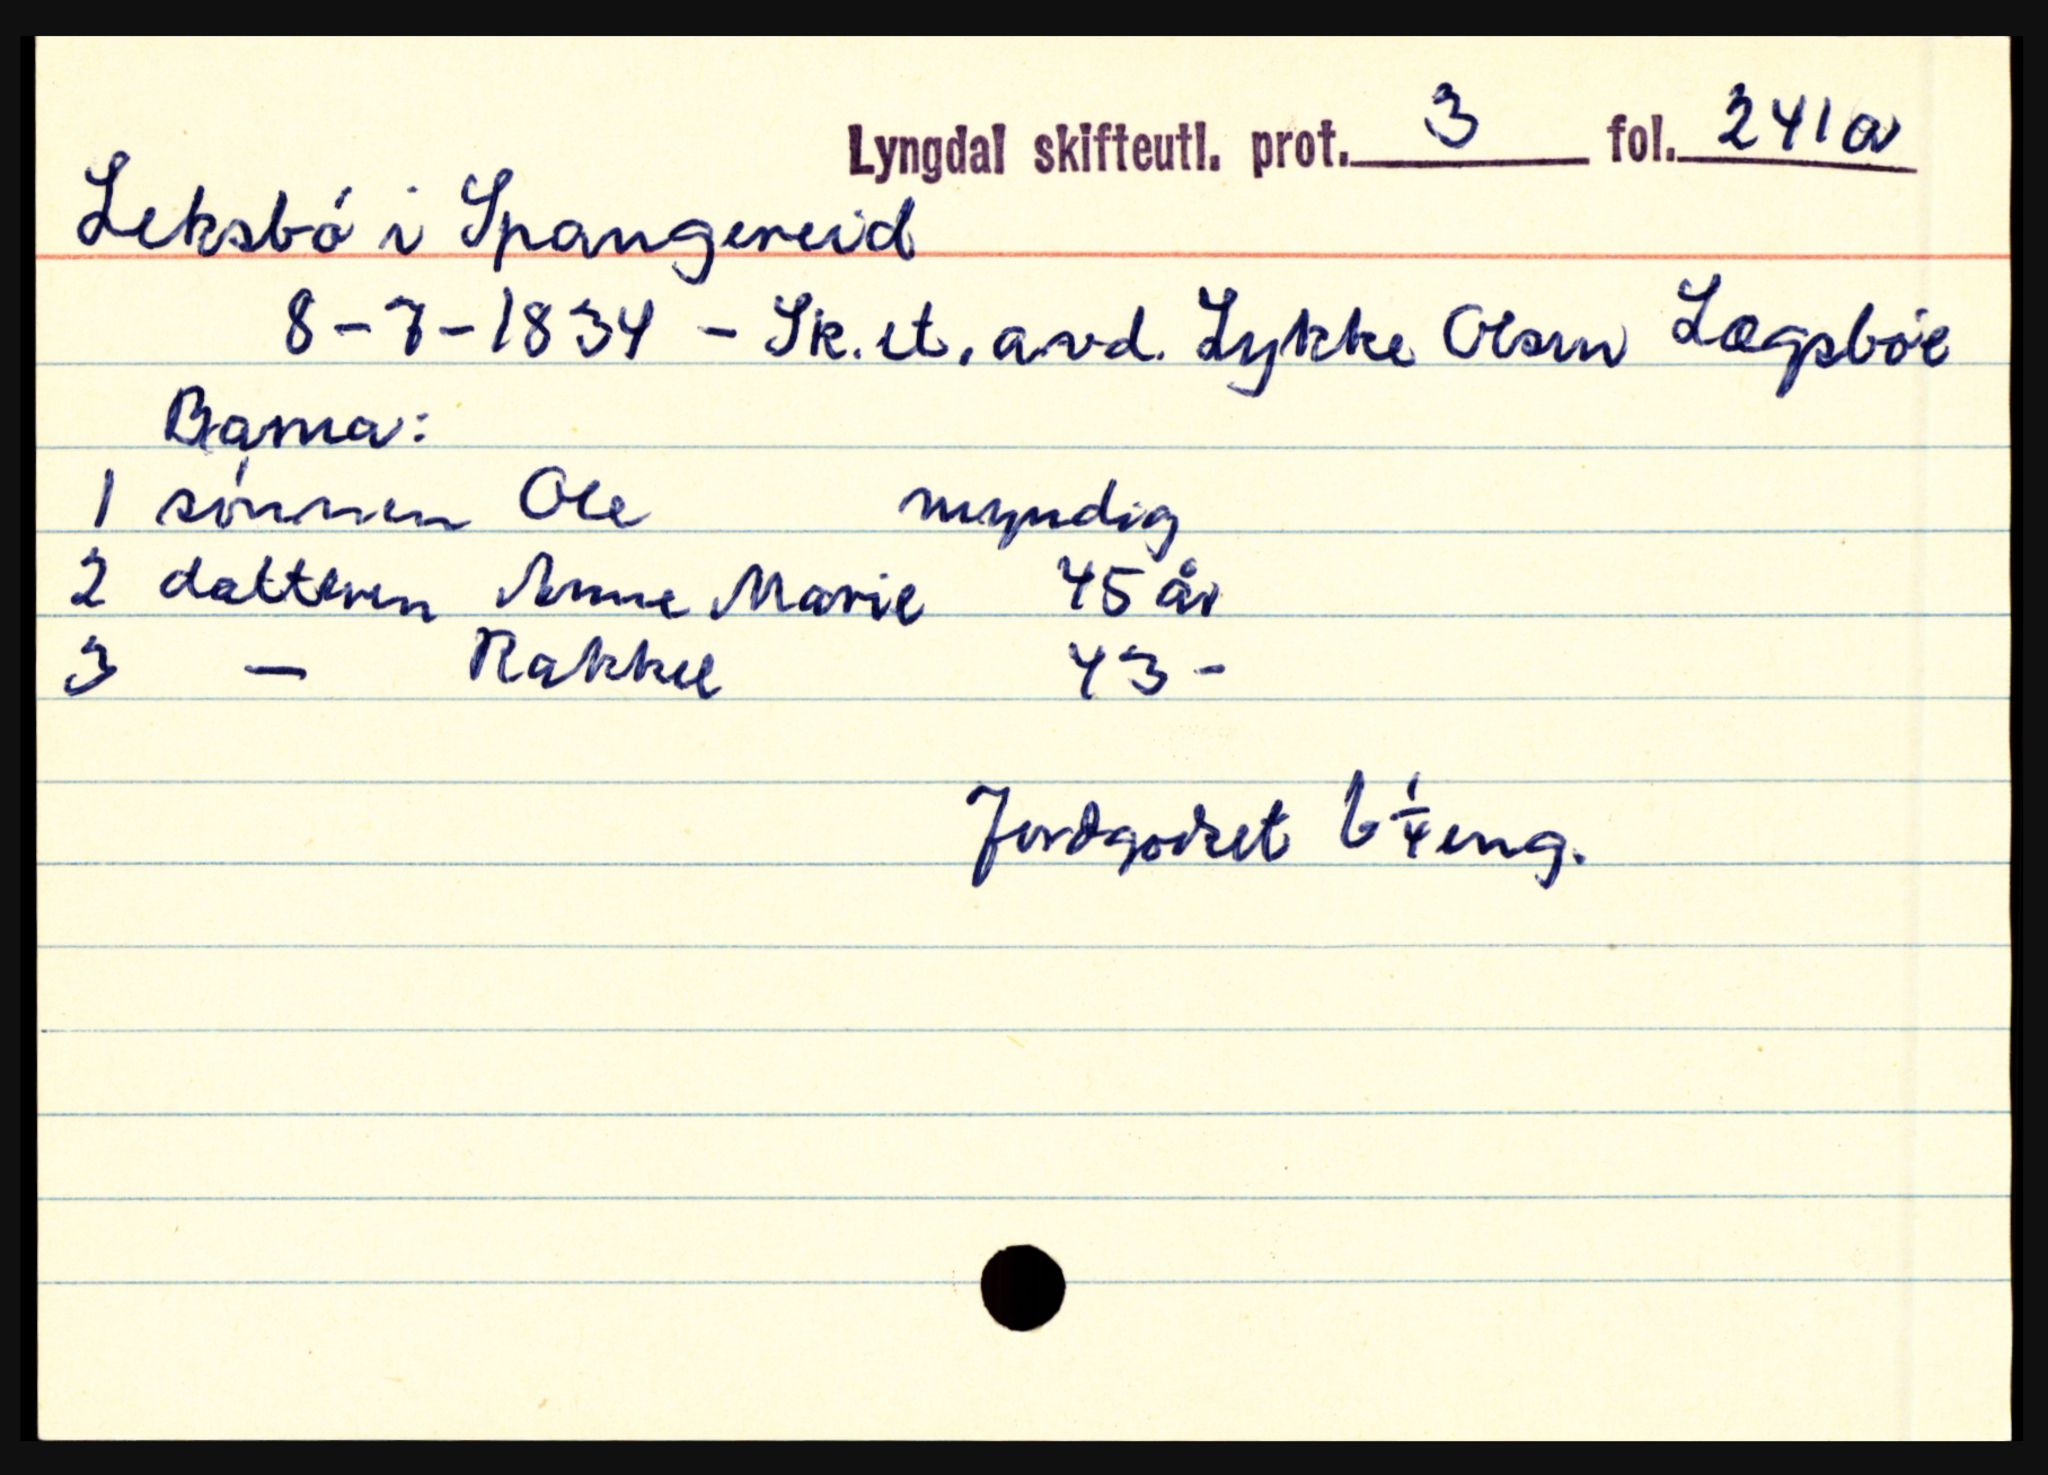 Lyngdal skifteutl. prot. 3 fol. 241a
Leksbó i Spangereid
8-7-1834 - Sk. et. avd. Lykke Olsen Lægsbóe
Barna:
1 sónnen Ole myndig
2 datteren Anne Marie 45 år
3 — Rakkel 43 -
Jordgodset b 1/4 eng.